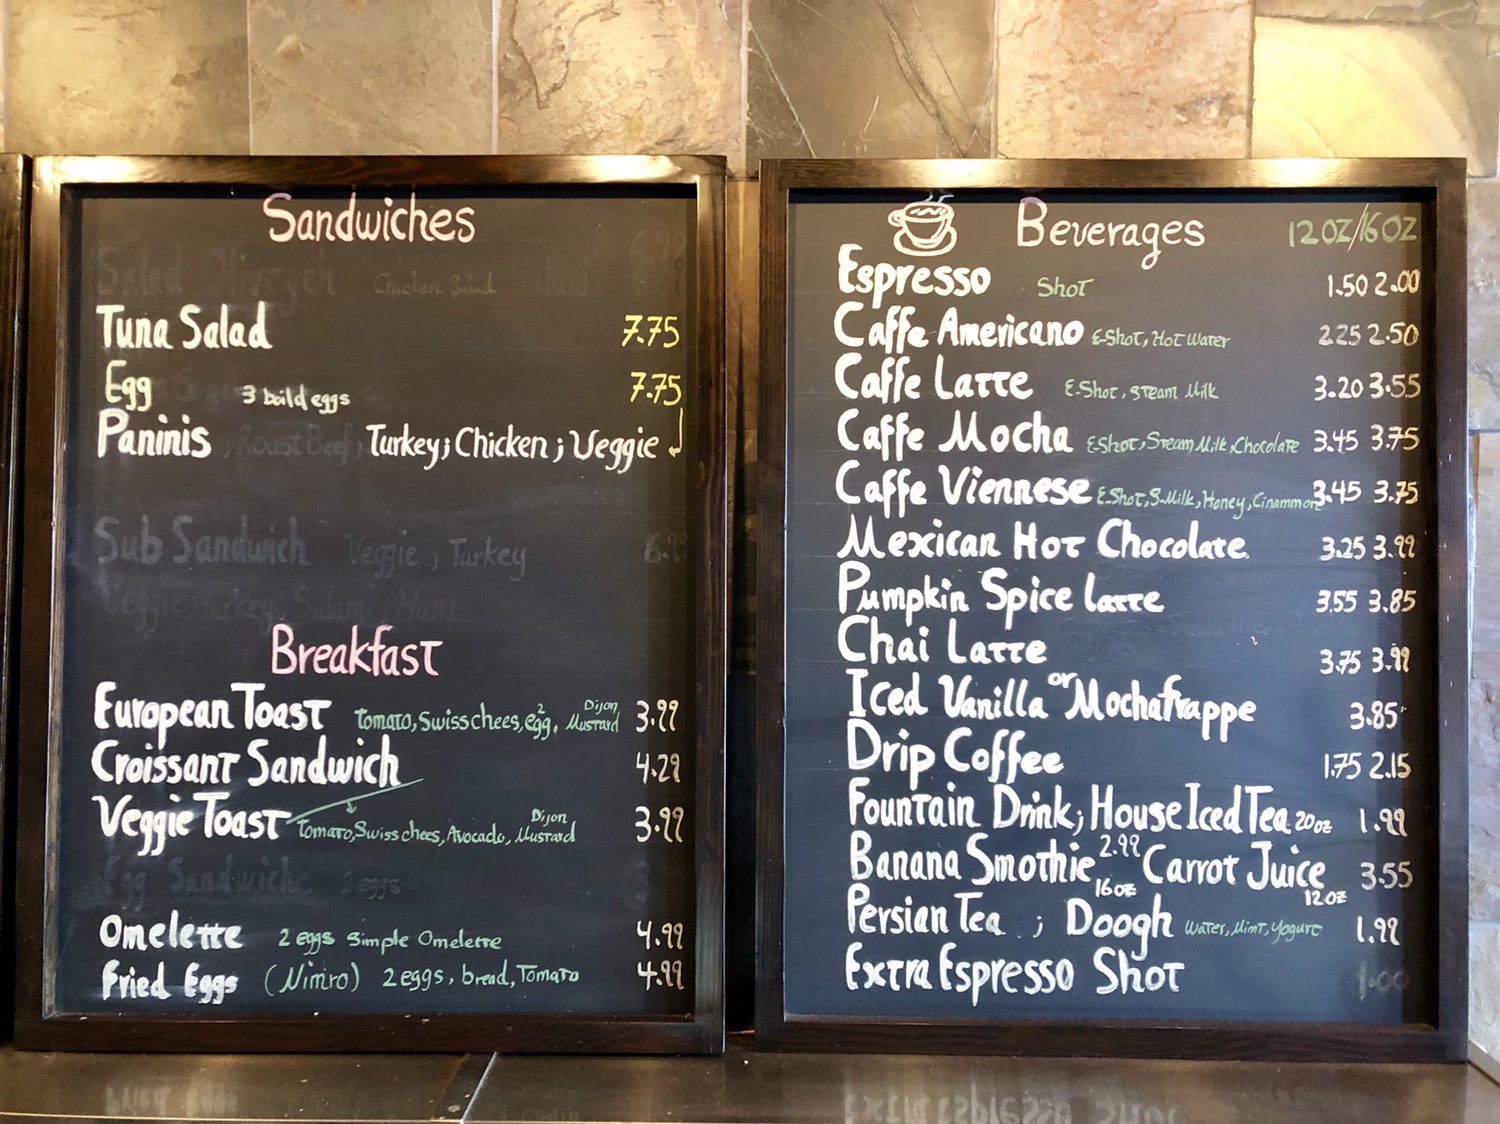 Sandwiches
Salad Olivezeh Chicken Salad Salad 6.99
Tuna Salad 7.75
Egg 3 boild eggs 7.75
Paninis ; Roast Beef; Turkey; Chicken; Veggie
Sub Sandwich Veggie ; Turkey 6.99
Veggie, Turkey, Salami, Ham
Breakfast
European Toast Tomato, Swiss chees, 2 egg, Dijon Mustard 3.99
Croissant Sandwich 4.29
Veggie Toast Tomato, Swiss chees, Avocado, Dijon Mustard 3.99
Egg Sandwiche 2 eggs 3
Omelette 2 eggs simple Omelette 4.99
Fried Eggs (Nimro) 2 eggs, bread, Tomato 4.99
Beverages 12 OZ/16 OZ
Espresso Shot 1.50 2.00
Caffe Americano E-Shot, Hot Water 2.25 2.50
Caffe Latte E-Shot, Steam Milk 3.20 3.55
Caffe Mocha E-Shot, Steam Milk, Chocolate 3.45 3.75
Caffe Viennese E-Shot, S-Milk, Honey, Cinammon 3.45 3.75
Mexican Hot Chocolate 3.25 3.99
Pumpkin Spice Latte 3.55 3.85
Chai Latte 3.75 3.99
Iced Vanilla or Mochafrappe 3.85
Drip Coffee 1.75 2.15
Fountain Drink; House Iced Tea 20 oz 1.99
Banana Smothie 2.99 16 oz Carrot Juice 12 oz 3.55
Persian Tea ; Doogh Water, Mint, Yogurt 1.99
Extra Espresso Shot 1.00